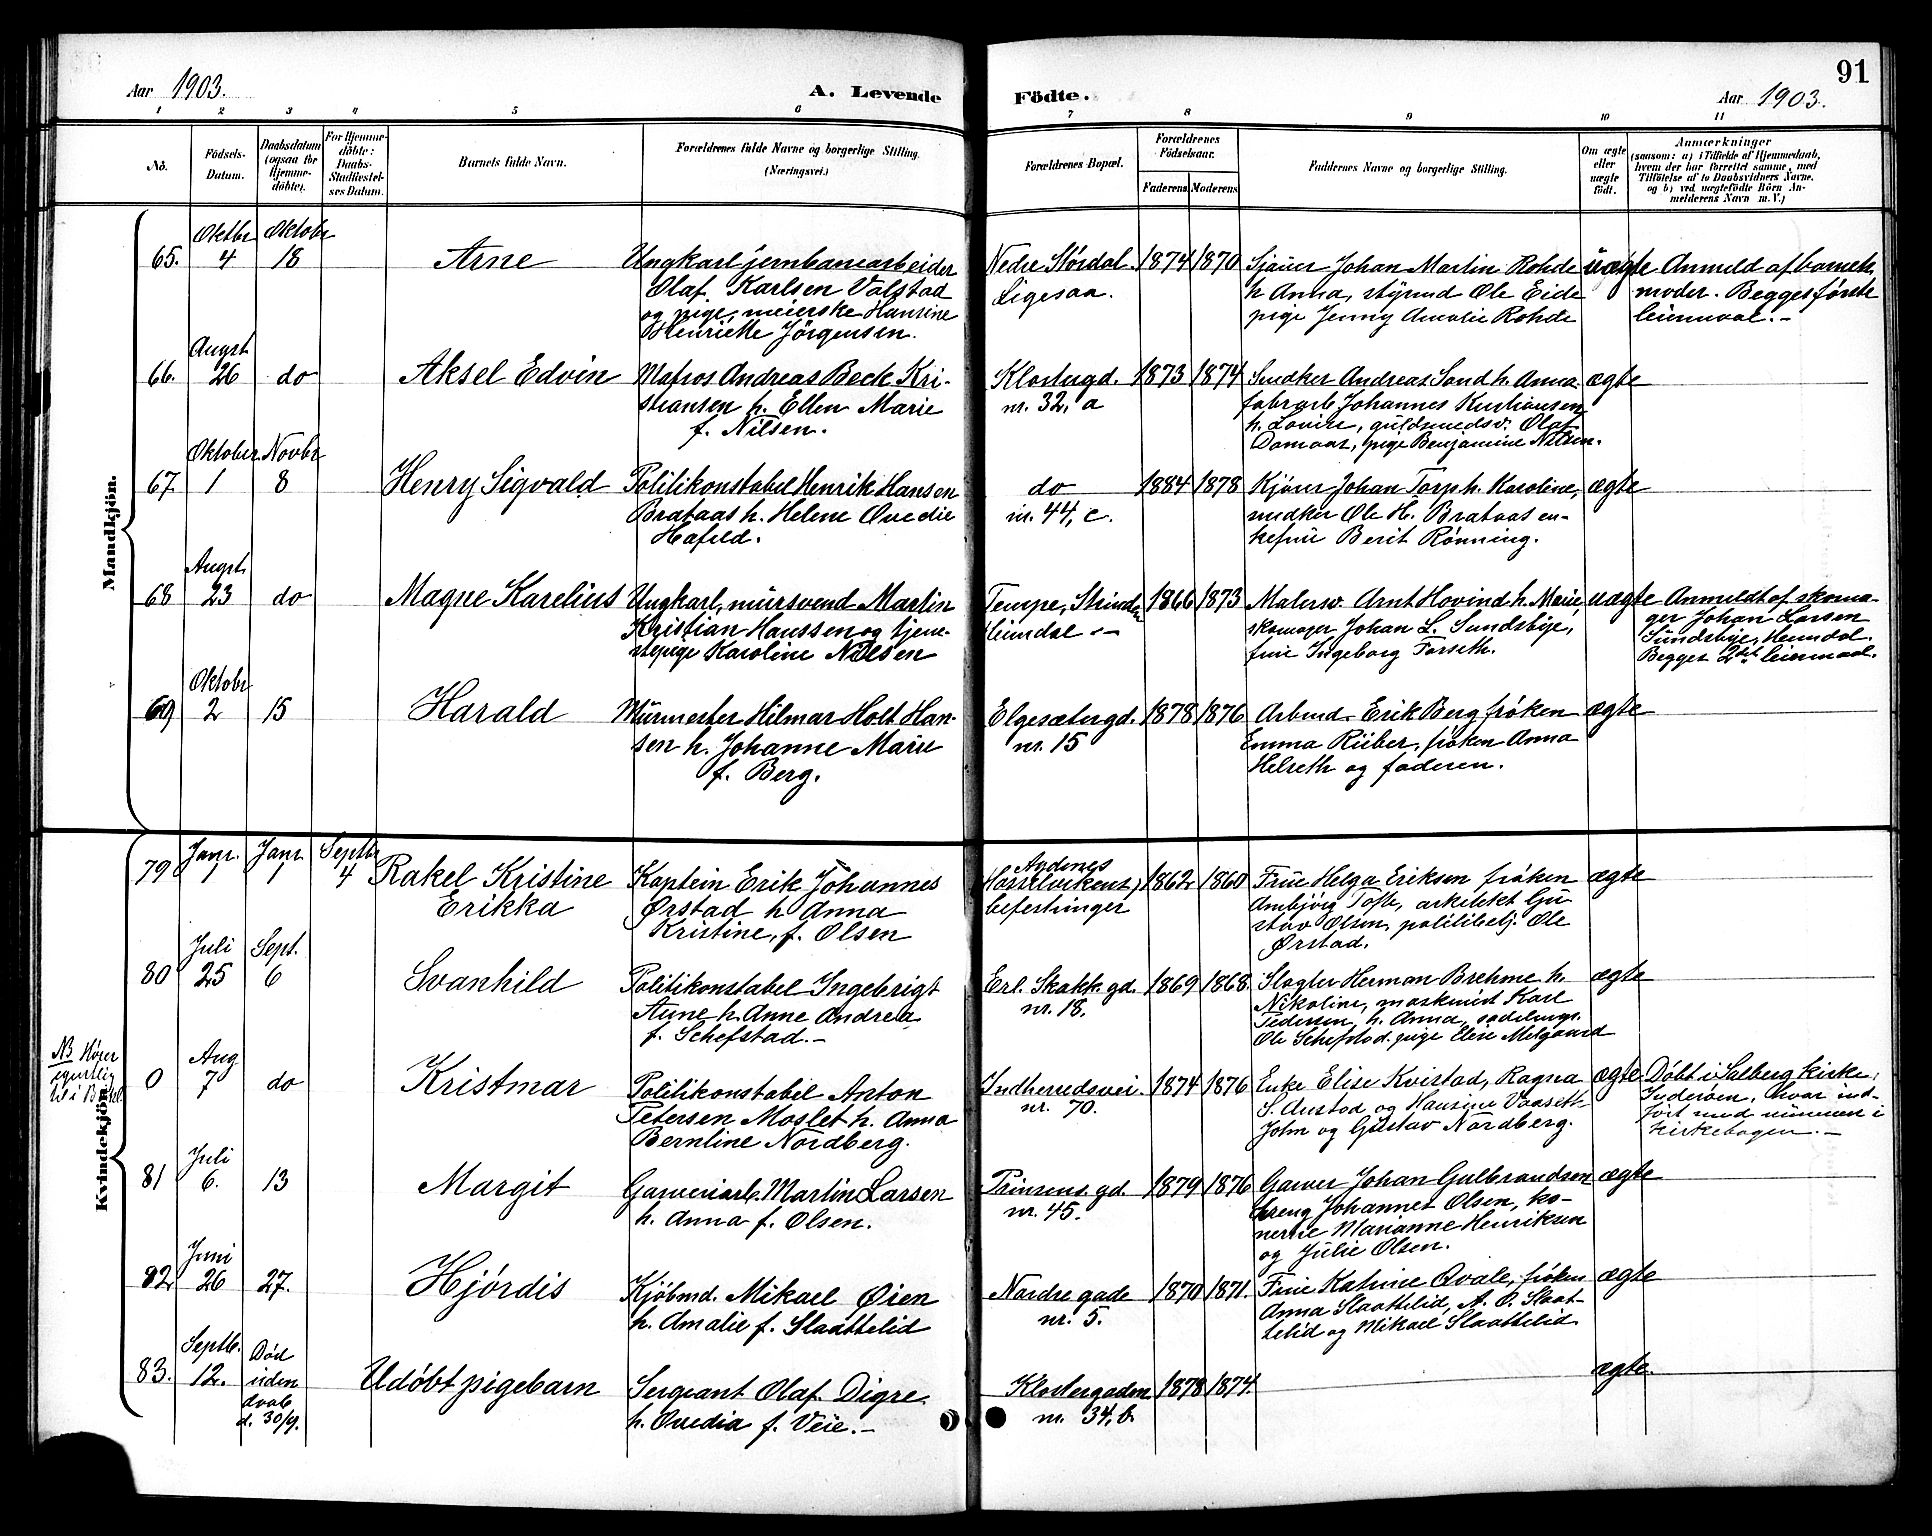 91
Aar 1903.
A. Levende
Födte.
Aar 1903.
1 2 3 4 5 6 7 8 9 10 11
No.
Födsels-
Datum.
Daabsdatum
(ogsaa for
Hjemme-
döbte).
For Hjemme-
döbte:
Daabs-
Stadfæstel-
ses Datum.
Barnets fulde Navn.
Forældrenes fulde Navne og borgerlige Stilling.
(Næringsvei.)
Forældrenes Bopæl.
Forældrenes
Födselsaar.
Faderens Moderens
Faddernes Navne og borgerlige Stilling.
Om ægte
eller
uægte
födt.
Anmærkninger
(saasom: a) i Tilfælde af Hjemmedaab,
hvem der har forrettet samme, med
Tilföielse af to Daabsvidners Navne,
og b) ved uægtefödte Börn An-
melderens Navn m. V.)
Mandkjön.
65.
Oktbr
4
Oktobr
18
Arne
Ungkarl jernbanearbeider
Olaf Karlsen Valstad
og pige, meierske Hansine
Henriette Jörgensen.
Nedre Stördal.
Ligesaa.
1874 1870
Sjauer Johan Martin Rohde
h Anna, styrmd Ole Eide
pige Jenny Amalie Rohde
uægte
Anmeld af barnets
moder. Begges förste
leiermaal.-
66.
Augst.
26
do
Aksel Edvin
Matros Andreas Beck Kri-
stiansen h. Ellen Marie
f. Nilsen.
Klostergd.
nr. 32, a
1873 1874
Snedker Andreas Sand h. Anna
fabrarb Johannes Kristiansen
h. Lovise, guldsmedsv. Olaf
pige Benjamine Nilsen.
ægte
67.
Oktober
1
Novbr
8
Henry Sigvald
Politikonstabel Henrik Hansen
Brataas h. Helene Ovedie
Hafeld.
do
nr. 44, c.
1884 1878
Kjörer Johan Torp h. Karoline,
snedker Ole H. Brataas en-
kefrue Berit Rönning.
ægte
68
Augst.
23
do
Magne Karelius
Ungkarl, mursvend Martin
Kristian Hanssen og tjene-
stepige Karoline Nilsen
Tempe, Strinden
Heimdal -
1866 1873
Malersv. Arnt Hovind h. Marie
skomager Johan L. Sundsbye,
frue Ingeborg Forseth.
uægte
Anmeldt af skoma-
ger Johan Larsen
Sundsbye, Heimdal.
Begges 2det leiermaal.
69
Oktobr
2
15
Harald
Murmester Hilmar Holt Han-
sen h. Johanne Marie
f. Berg.
Elgesætergd.
nr. 15
1878 1876
Arbmd. Erik Berg fröken
Emma Riiber, fröken Anna
Helseth og faderen.
ægte
Kvindekjön.
79
Janr.
1
Janr.
1
Septbr
4
Rakel Kristine
Erikka
Kaptein Erik Johannes
Ørstad h Anna
Kristine, f. Olsen
Agdenes
Hasselvikens
befestninger
1862 1860
Frue Helga Eriksen fröken
Ambjörg Tofte, arkitekt Gu-
stav Olsen, politibetj. Ole
Ørstad.
ægte
80
Juli
25
Sept.
6
Svanhild
Politikonstabel Ingebrigt
Aune h. Anne Andrea
f. Schefstad.-
Erl. Skakk. gd.
nr. 18.
1869 1868.
Slagter Herman Brehme h.
Nikoline, maskinist Karl
Pedersen h. Anna, sadelmgs.
Ole Schefstad. pige Elise Melgaard
ægte
NB Hörer
egentlig
til i Baklet
0
Aug
7
do
Kristmar
Politikonstabel Anton
Petersen Moslet h. Anna
Berntine Nordberg.
Indherredsvei.
nr. 70.
1874 1876
Enke Elise Kvistad, Ragna
S. Austad og Hansine Vaaseth
John og Gustav Nordberg.
ægte
Döbt i Salberg kirke,
Inderöen, hvor ind-
fört med nummer i
kirkebogen.-
81
Juli
6.
13
Margit
Garveriarb. Martin Larsen
h. Anna f. Olsen.
Prinsens gd.
nr. 45.
1879 1876
Garver Johan Gulbrandsen
Johannes Olsen, ko-
nerne Marianne Henriksen
og Julie Olsen.
ægte
82
Juni
26
27.
Hjördis
Kjöbmd. Mikael Øien
h. Amalie f. Slaattelid
Nordre gade
nr. 5.
1870 1871.
Frue Katrine Qvale, fröken
Anna Slaattelid, A. O. Slaat-
telid og Mikael Slaattelid
ægte
83.
Septb.
12.
Död
uden
daab
d. 30/9.
Udöbt pigebarn
Sergeant Olaf Digre
h. Ovedia f. Veie.-
Klostergaden
nr. 34, b.
1878 1874.
ægte.